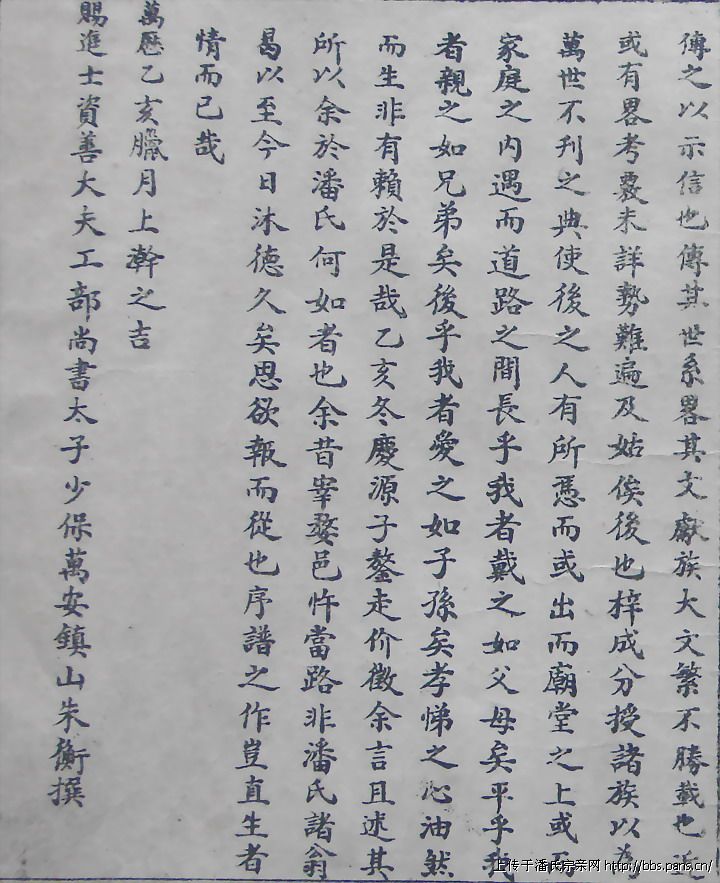 傳之以示信也傳其世系畧其文獻族大文繁不勝載也
或有畧考覈未詳勢難遍及姑俟後也梓成分授諸族以為
萬世不刊之典使後之人有所憑而或出而廟堂之上或
家庭之内遇而道路之間長乎我者戴之如父母矣平乎我
者親之如兄弟矣後乎我者愛之如子孫矣孝悌之心油然
而生非有賴於是哉乙亥冬慶源子鏊走价徵余言且述其
所以余於潘氏何如者也余昔宰婺邑忤當路非潘氏諸翁
曷以至今日沐德久矣思欲報而從也序譜之作豈直生者
情而已哉
萬歷乙亥臘月上澣之吉
賜進士資善大夫工部尚書太子少保萬安鎮山朱衡撰
上传于潘氏宗亲网 http://bbs.pans.cn/